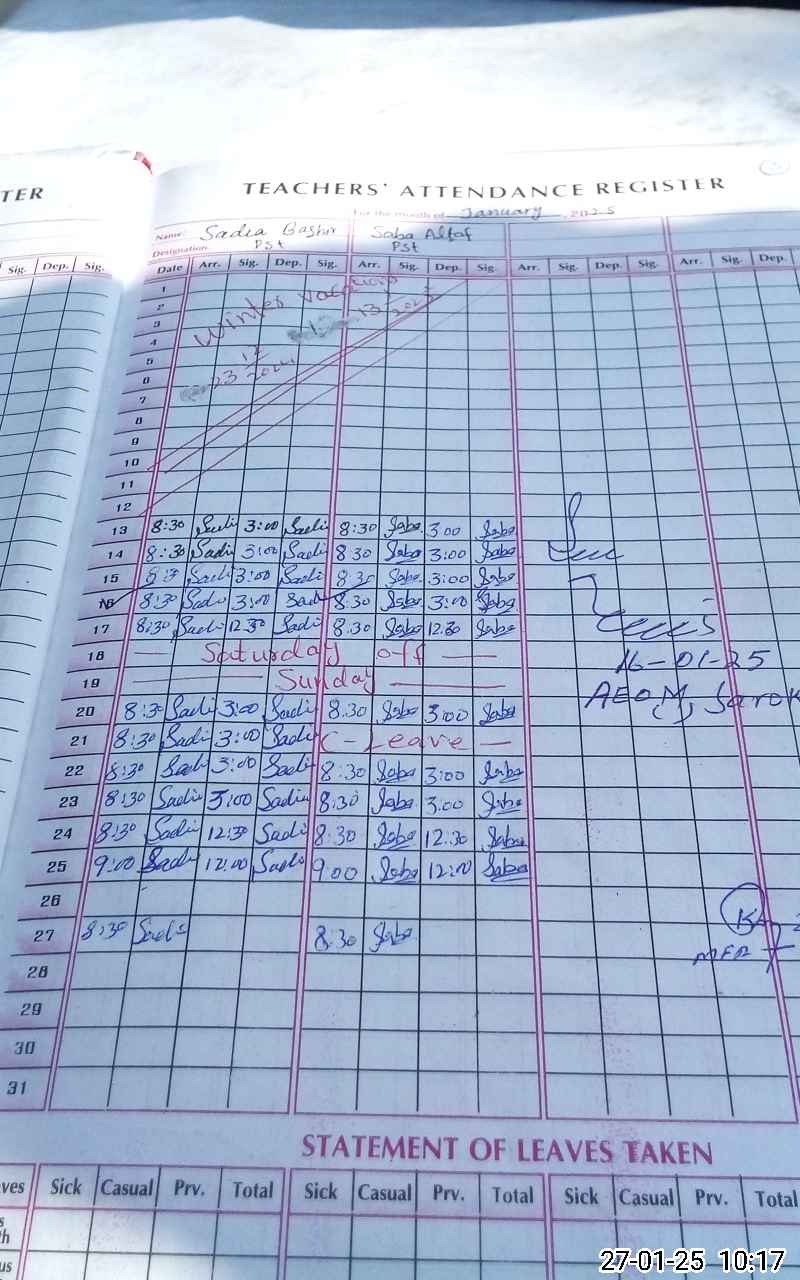 TER
TEACHERS' ATTENDANCE REGISTER
For the month of January, 2025
Name: Sadia Bashir Saba Altaf
Designation Pst Pst
Sig. Dep. Sig. Date Arr. Sig. Dep. Sig. Arr. Sig. Dep. Sig. Arr. Sig. Dep. Sig. Arr. Sig. Dep.
1
2 Winter vacation
3
4
5
6
7
8
9
10
11
12
13 8:30 Sadi 3:00 Sadi 8:30 Saba 3:00 Saba
14 8:30 Sadi 3:00 Sadi 8:30 Saba 3:00 Saba
15 8:30 Sadi 3:00 Sadi 8:30 Saba 3:00 Saba
16 8:30 Sadi 3:00 Sadi 8:30 Saba 3:00 Saba
17 8:30 Sadi 12:30 Sadi 8:30 Saba 12:30 Saba
18 — Saturday off —
16-01-25
19 — Sunday —
AEO(M)
20 8:30 Sadi 3:00 Sadi 8:30 Saba 3:00 Saba
21 8:30 Sadi 3:00 Sadi C-Leave —
22 8:30 Sadi 3:00 Sadi 8:30 Saba 3:00 Saba
23 8:30 Sadi 3:00 Sadi 8:30 Saba 3:00 Saba
24 8:30 Sadi 12:30 Sadi 8:30 Saba 12:30 Saba
25 9:00 Sadi 12:00 Sadi 9:00 Saba 12:00 Saba
26
27 8:30 Sadi 8:30 Saba
28
29
30
31
STATEMENT OF LEAVES TAKEN
ves Sick Casual Prv. Total Sick Casual Prv. Total Sick Casual Prv. Total
27-01-25 10:17